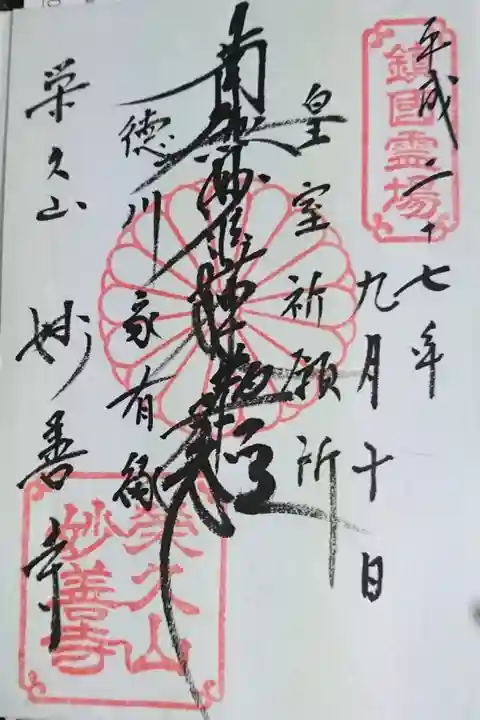 鎮国霊場
平成二十七年
九月十日
皇室祈願所
南無妙法蓮華経
徳川家有縁
栄久山 妙善寺
栄久山
妙善寺